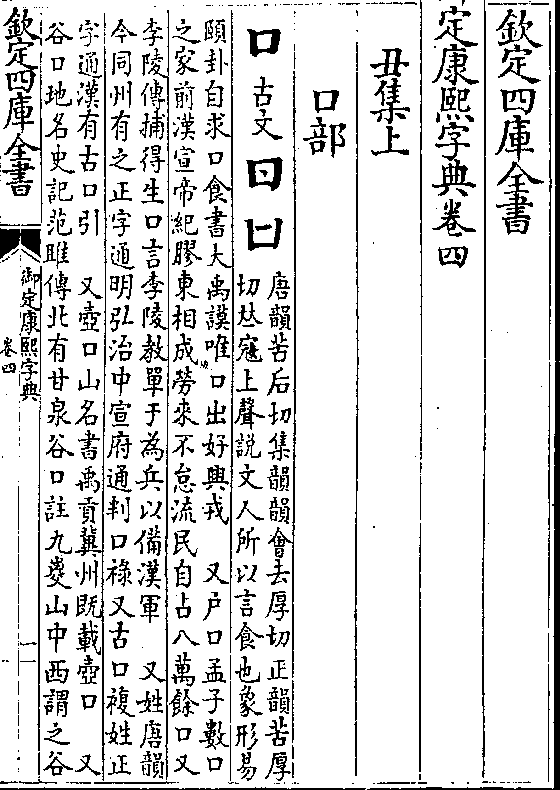 欽定四庫全書
定康熙字典卷四
丑集上
口部
口 古文 𠙵 㠯
唐韻苦后切集韻韻會去厚切正韻苦厚
切𠀤寇上聲說文人所以言食也象形易
頤卦自求口食書大禹謨唯口出好興戎 又戶口孟子數口
之家前漢宣帝紀膠東相成勞來不怠流民自占八萬餘口又
李陵傳捕得生口言李陵教單于為兵以備漢軍 又姓唐韻
今同州有之正字通明弘治中宣府通判口祿又古口複姓正
字通漢有古口引 又壺口山名書禹貢冀州既載壺口 又
谷口地名史記范雎傳北有甘泉谷口註九嵏山中西謂之谷
欽定四庫全書
御定康熙字典
卷四
一